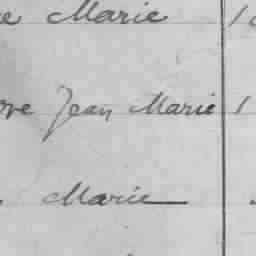 Marie
Jean Marie
Marie